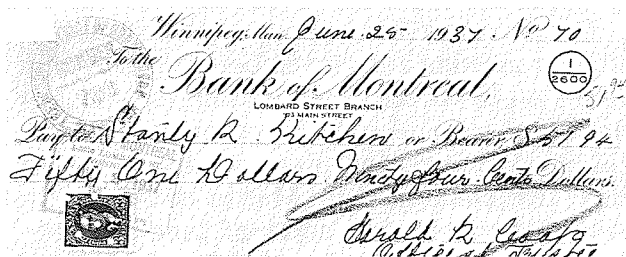 Winnipeg, Man. June 25 1937 No 70
To the
Bank of Montreal,
1
2600
LOMBARD STREET BRANCH
MAIN STREET
51 94
Pay to Stanly R Kitchen or Bearer $ 51 94
Fifty One Dollars Ninety four Cents Dollars.
Harold R